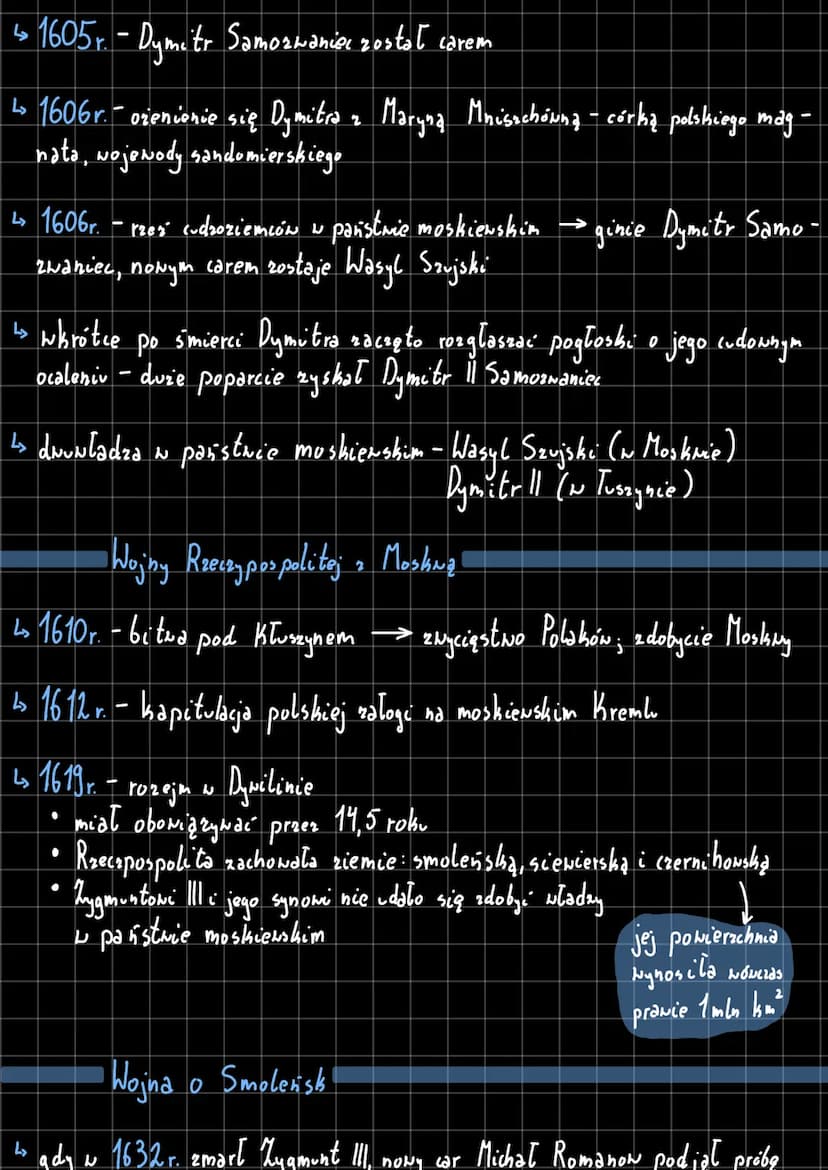 ↳ 1605r. - Dymitr Samozwaniec został carem
↳ 1606r. - ożenienie się Dymitra z Maryną Mniszchówną - córką polskiego mag-
nata, wojewody sandomierskiego
↳ 1606r. - rzeź cudzoziemców w państwie moskiewskim → ginie Dymitr Samo-
zwaniec, nowym carem zostaje Wasyl Szujski
↳ wkrótce po śmierci Dymitra zaczęto rozgłaszać pogłoski o jego cudownym
ocaleniu - duże poparcie zyskał Dymitr II Samozwaniec
↳ dwuwładza w państwie moskiewskim - Wasyl Szujski (w Moskwie)
Dymitr II (w Tuszynie)
Wojny Rzeczypospolitej z Moskwą
↳ 1610r. - bitwa pod Kłuszynem → zwycięstwo Polaków; zdobycie Moskwy
↳ 1612r. - kapitulacja polskiej załogi na moskiewskim Kremlu
↳ 1619r. - rozejm w Dywilinie
• miał obowiązywać przez 14,5 roku
• Rzeczpospolita zachowała ziemie: smoleńską, siewierską i czernihowską
• Zygmuntowi III i jego synowi nie udało się zdobyć władzy
w państwie moskiewskim
jej powierzchnia
wynosiła wówczas
prawie 1 mln km²
Wojna o Smoleńsk
↳ gdy w 1632r. zmarł Zygmunt III, nowy car Michał Romanow podjął próbę